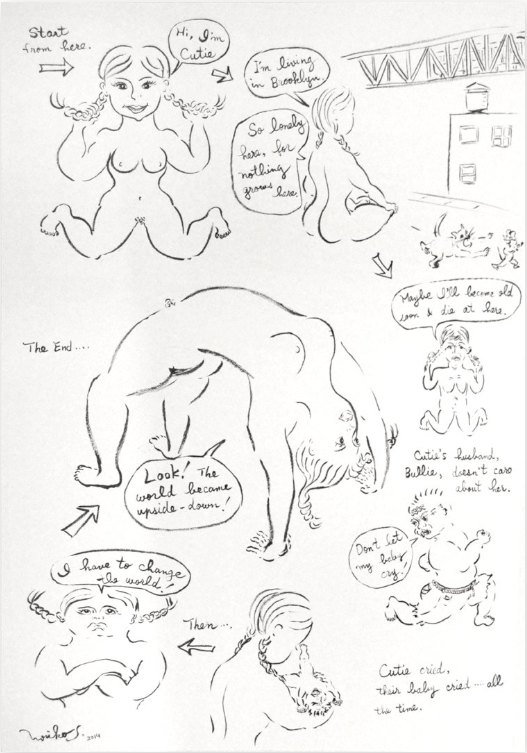 Start
from here.
Hi, I'm
Cutie
I'm living
in Brooklyn.
So lonely
here, for
nothing
grows
here.
Maybe I'll become old
soon & die at here.
Cutie's husband,
Bullie, doesn't care
about her.
Don't let
my baby
cry!
Cutie cried,
their baby cried---all
the time.
Then....
I have to change
the world!
Look! The
world became
upside-down!
The End....
Noriko S. 2014